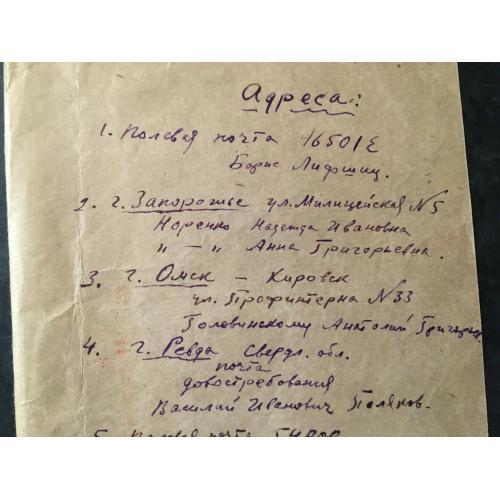 Адреса:
1. Полевая почта 16501Е
Борис Лифшиц.
2. г. Запорожье ул. Милицейская №5
Норенко Надежда Ивановна
„ – „ Анна Григорьевна.
3. г. Омск – Кировск
ул. Профинтерна №33
Головинскому Анатолий
4. г. Ревда Свердл. обл.
почта
довостребования
Василий Иванович Поляков.
5. Полевая почта